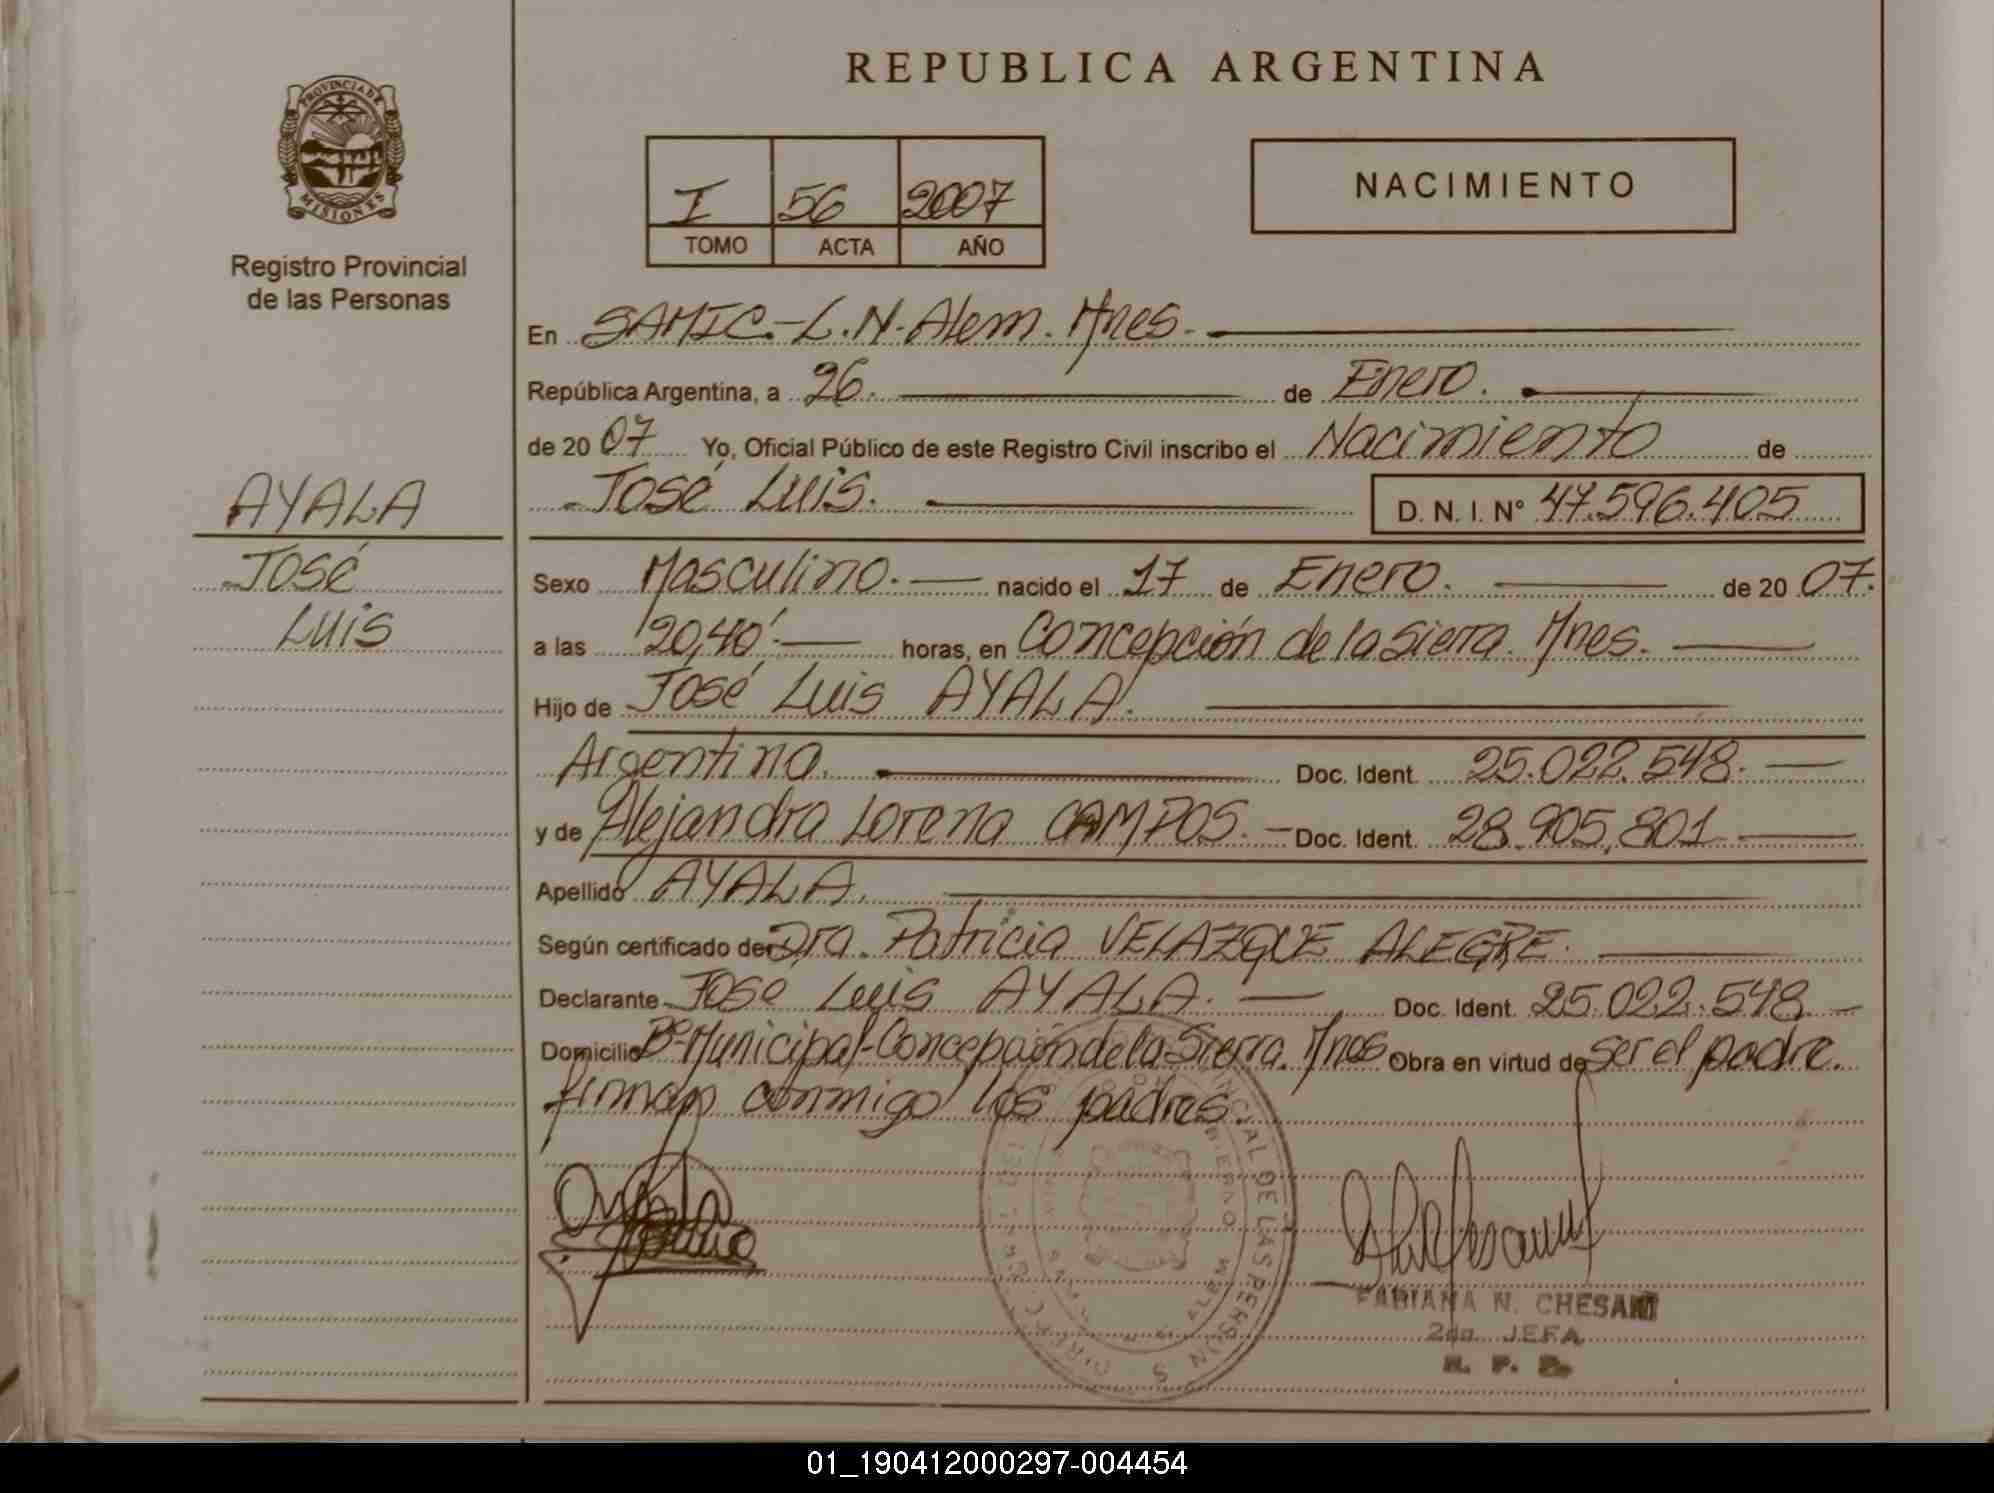 REPUBLICA ARGENTINA
PROVINCIA DE
MISIONES
Registro Provincial
de las Personas
I 56 2007
TOMO ACTA AÑO
NACIMIENTO
En SAMIC.-L.N.Alem. Mnes.
República Argentina, a 26. de Enero.
de 20 07 Yo, Oficial Público de este Registro Civil inscribo el Nacimiento de
José Luis. D. N. I. N° 47.596.405
AYALA
José
Luis
Sexo Masculino. nacido el 17 de Enero. de 20 07.
a las 20,40' horas, en Concepción de la Sierra. Mnes.
Hijo de José Luis AYALA.
Argentina. Doc. Ident. 25.022.548.
y de Alejandra Lorena CAMPOS. Doc. Ident. 28.905.801
Apellido AYALA.
Según certificado de Dra. Patricia VELAZQUE ALEGRE.
Declarante José Luis AYALA. Doc. Ident. 25.022.548
Domicilio B° Municipal-Concepción de la Sierra. Mnes. Obra en virtud de ser el padre.
firman conmigo los padres.
FABIANA N. CHESANI
2da. JEFA
R. P. P.
01_190412000297-004454